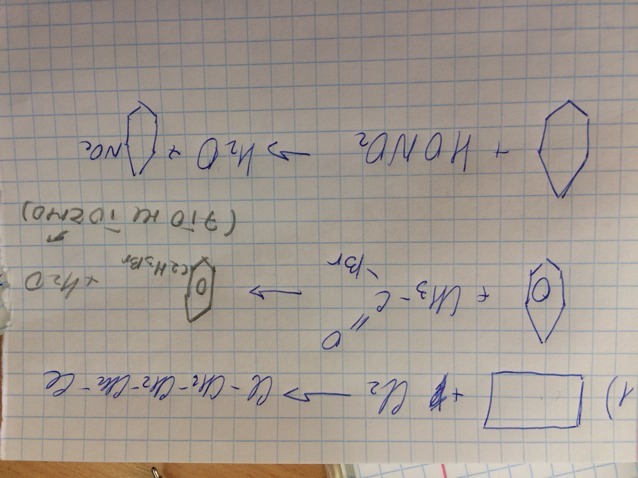 1) + Cl2 → Cl-CH2-CH2-CH2-CH2-Cl
O
+ CH3-C-Br → C2H3Br + H2O
(это не точно)
+ HONO2 → H2O + NO2